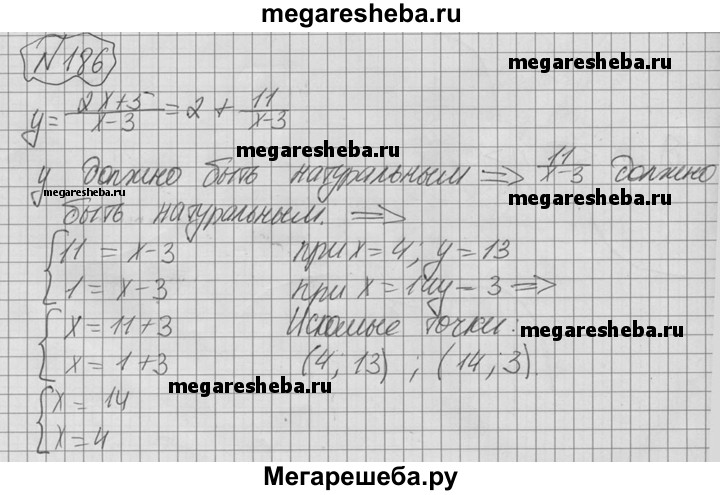 megaresheba.ru
N 186
megaresheba.ru
y = \frac{2x+5}{x-3} = 2 + \frac{11}{x-3}
megaresheba.ru
y должно быть натуральным ⇒ \frac{11}{x-3} должно
megaresheba.ru
megaresheba.ru
быть натуральным. ⇒
{ 11 = x-3
1 = x-3
{ x = 11+3
x = 1+3
{ x = 14
x = 4
при x = 4; y = 13
при x = 14 y = 3 ⇒
Искомые точки:
megaresheba.ru
(4; 13) ; (14; 3).
megaresheba.ru
Мегарешеба.ру